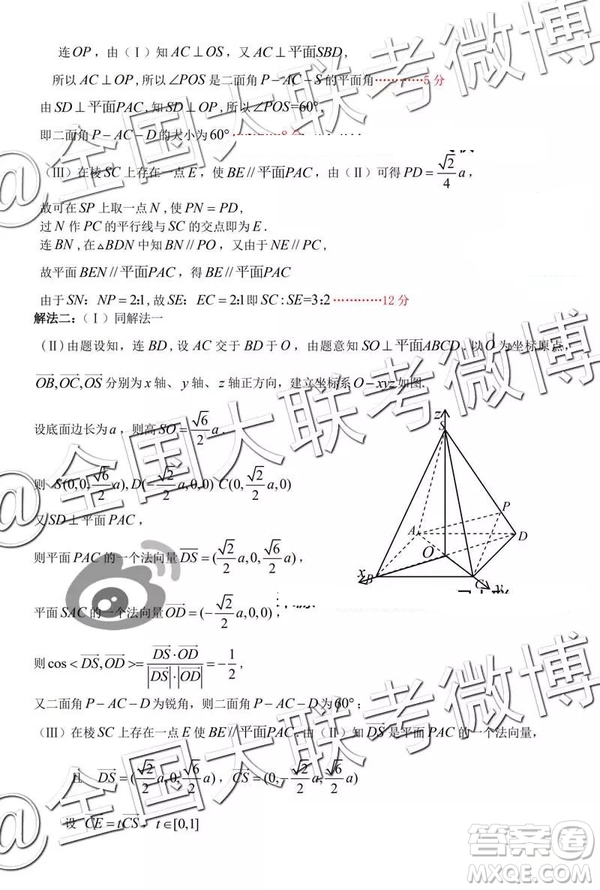 连OP，由（Ⅰ）知AC⊥OS，又AC⊥平面SBD，
所以AC⊥OP，所以∠POS是二面角P－AC－S的平面角…………5分
由SD⊥平面PAC，知SD⊥OP，所以∠POS=60°，
即二面角P－AC－D的大小为60°…………8分
（Ⅲ）在棱SC上存在一点E，使BE//平面PAC，由（Ⅱ）可得PD=√2/4 a，
故可在SP上取一点N，使PN=PD，
过N作PC的平行线与SC的交点即为E．
连BN，在△BDN中知BN//PO，又由于NE//PC，
故平面BEN//平面PAC，得BE//平面PAC
由于SN：NP=2:1，故SE：EC=2:1即SC:SE=3:2…………12分
解法二：（Ⅰ）同解法一
（Ⅱ）由题设知，连BD，设AC交于BD于O，由题意知SO⊥平面ABCD．以O为坐标原点，
OB,OC,OS分别为x轴、y轴、z轴正方向，建立坐标系O－xyz如图．
设底面边长为a，则高SO=√6/2 a．
则 S(0,0,√6/2 a),D(-√2/2 a,0,0) C(0,√2/2 a,0)
又SD⊥平面PAC，
则平面PAC的一个法向量DS=(√2/2 a,0,√6/2 a)，
平面SAC的一个法向量OD=(-√2/2 a,0,0)，
则cos<DS,OD>=DS·OD/|DS|·|OD|=-1/2，
又二面角P－AC－D为锐角，则二面角P－AC－D为60°；
（Ⅲ）在棱SC上存在一点E使BE//平面PAC．由（Ⅱ）知DS是平面PAC的一个法向量，
且 DS=(√2/2 a,0,√6/2 a)，CS=(0,-√2/2 a,√6/2 a)
设 CE=tCS，t∈[0,1]
z
S
P
A
D
O
x
B
C
y
@全国大联考微博
@全国大联考微博
@全国大联考微博
答案圈
MXQE.COM